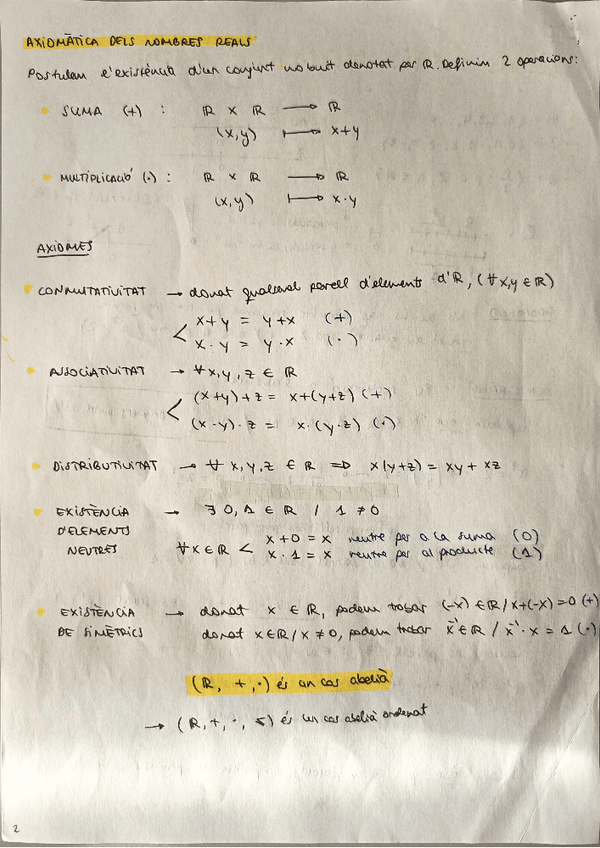 AXIOMÀTICA DELS NOMBRES REALS
Postulem l'existència d'un conjunt no buit denotat per ℝ. Definim 2 operacions:
• SUMA (+) : ℝ × ℝ ⟶ ℝ
(x,y) ⟼ x+y
• MULTIPLICACIÓ (·) : ℝ × ℝ ⟶ ℝ
(x,y) ⟼ x·y
AXIOMES
• CONMUTATIVITAT → donat qualsevol parell d'elements d'ℝ, (∀x,y ∈ ℝ)
< x+y = y+x (+)
x·y = y·x (·)
• ASSOCIATIVITAT → ∀x,y,z ∈ ℝ
< (x+y)+z = x+(y+z) (+)
(x·y)·z = x·(y·z) (·)
• DISTRIBUTIVITAT → ∀ x,y,z ∈ ℝ ⇒ x(y+z) = xy + xz
• EXISTÈNCIA → ∃ 0,1 ∈ ℝ / 1 ≠ 0
D'ELEMENTS
NEUTRES
∀x∈ℝ < x+0 = x neutre per a la suma (0)
x·1 = x neutre per al producte (1)
• EXISTÈNCIA → donat x ∈ ℝ, podem trobar (-x) ∈ ℝ / x+(-x) = 0 (+)
DE SIMÈTRICS donat x∈ℝ / x ≠ 0, podem trobar x⁻¹ ∈ ℝ / x⁻¹·x = 1 (·)
(ℝ, +, ·) és un cos abelià
→ (ℝ, +, ·, ≤) és un cos abelià ordenat
2